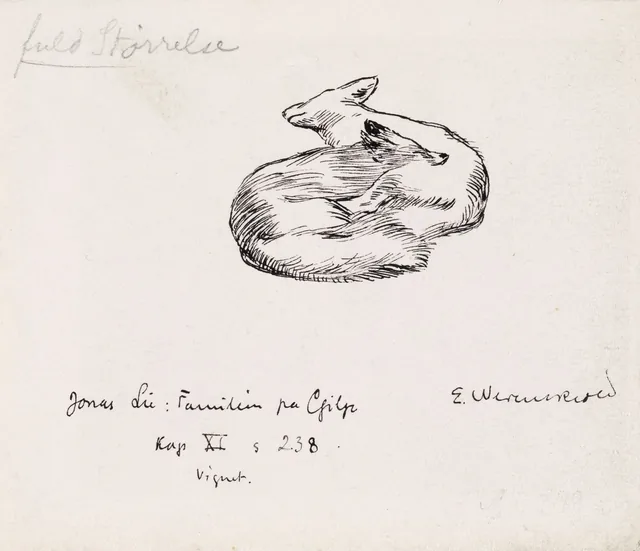 fuld Størrelse
Jonas Lie: Familien pa Gilje
E. Werenskiold
Kap XI s 238.
Vignet.